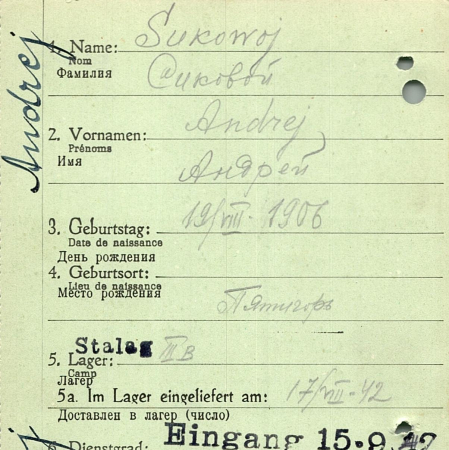 Andrej
1. Name: Sukowoj
Nom
Фамилия Сиковой
2. Vornamen: Andrej
Prénoms
Имя Андрей
3. Geburtstag: 19/VIII-1906
Date de naissance
День рождения
4. Geburtsort:
Lieu de naissance
Место рождения Пятигоръ
Stalag III B
5. Lager:
Camp
Лагерь
5a. Im Lager eingeliefert am: 17/VIII-42
Доставлен в лагерь (число)
6. Dienstgrad: Eingang 15.9.42